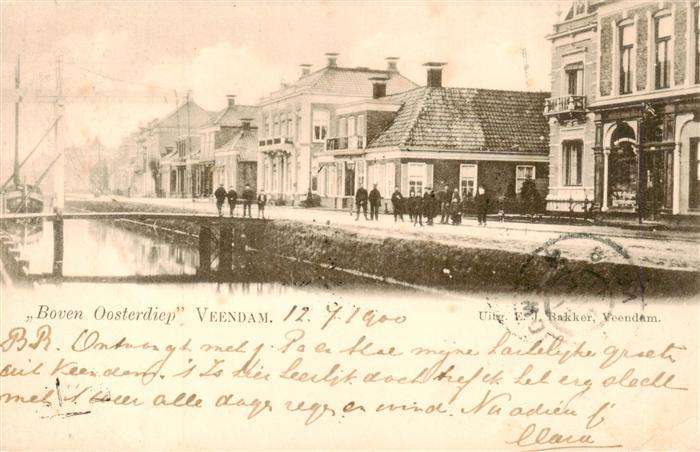 „Boven Oosterdiep" VEENDAM. 12.7.1900
Uitg. E. J. Bakker, Veendam.
B.R. Ontvangt met j. Pa en Moe mijne hartelijke groeten
uit Veendam. 's Is hier heerlijk doch tref ik het erg slecht
met 't weer alle dagen regen en wind. Nu adieu
Clara